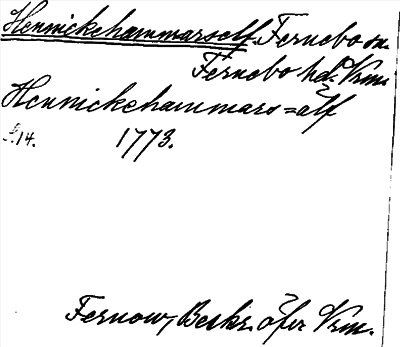 Hennickehammarself. Fernebo sn.
Fernebo hd. Vrm.
Hennickehammars=älf
s. 14. 1773.
Fernow, Beskr. öfver Vrm.